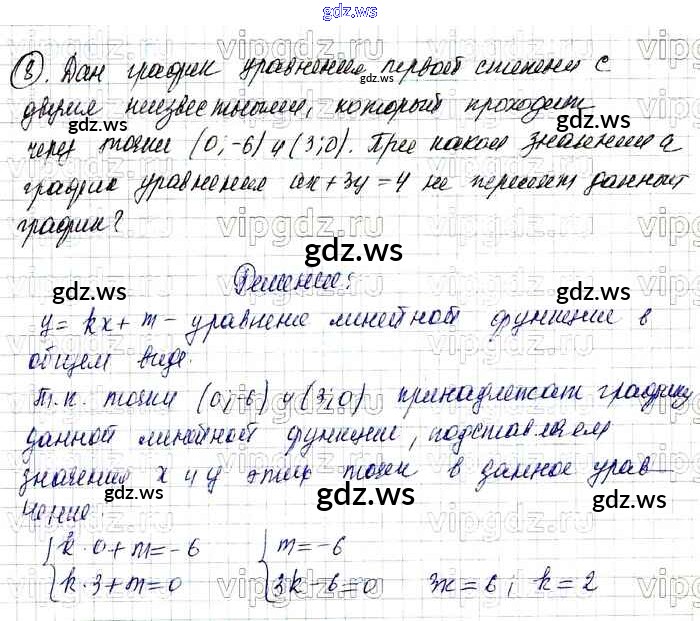 gdz.ws
8. Дан график уравнения первой степени с
двумя неизвестными, который проходит
через точки (0;-6) и (3;0). При каком значении a
график уравнения ax+3y=4 не пересечет данный
график?
Решение:
y=kx+m - уравнение линейной функции в
общем виде.
Т.к. точки (0;-6) и (3;0) принадлежат графику
данной линейной функции, подставляем
значения x и y этих точек в данное урав-
нение.
k·0+m=-6 m=-6
k·3+m=0 3k-6=0 3k=6; k=2